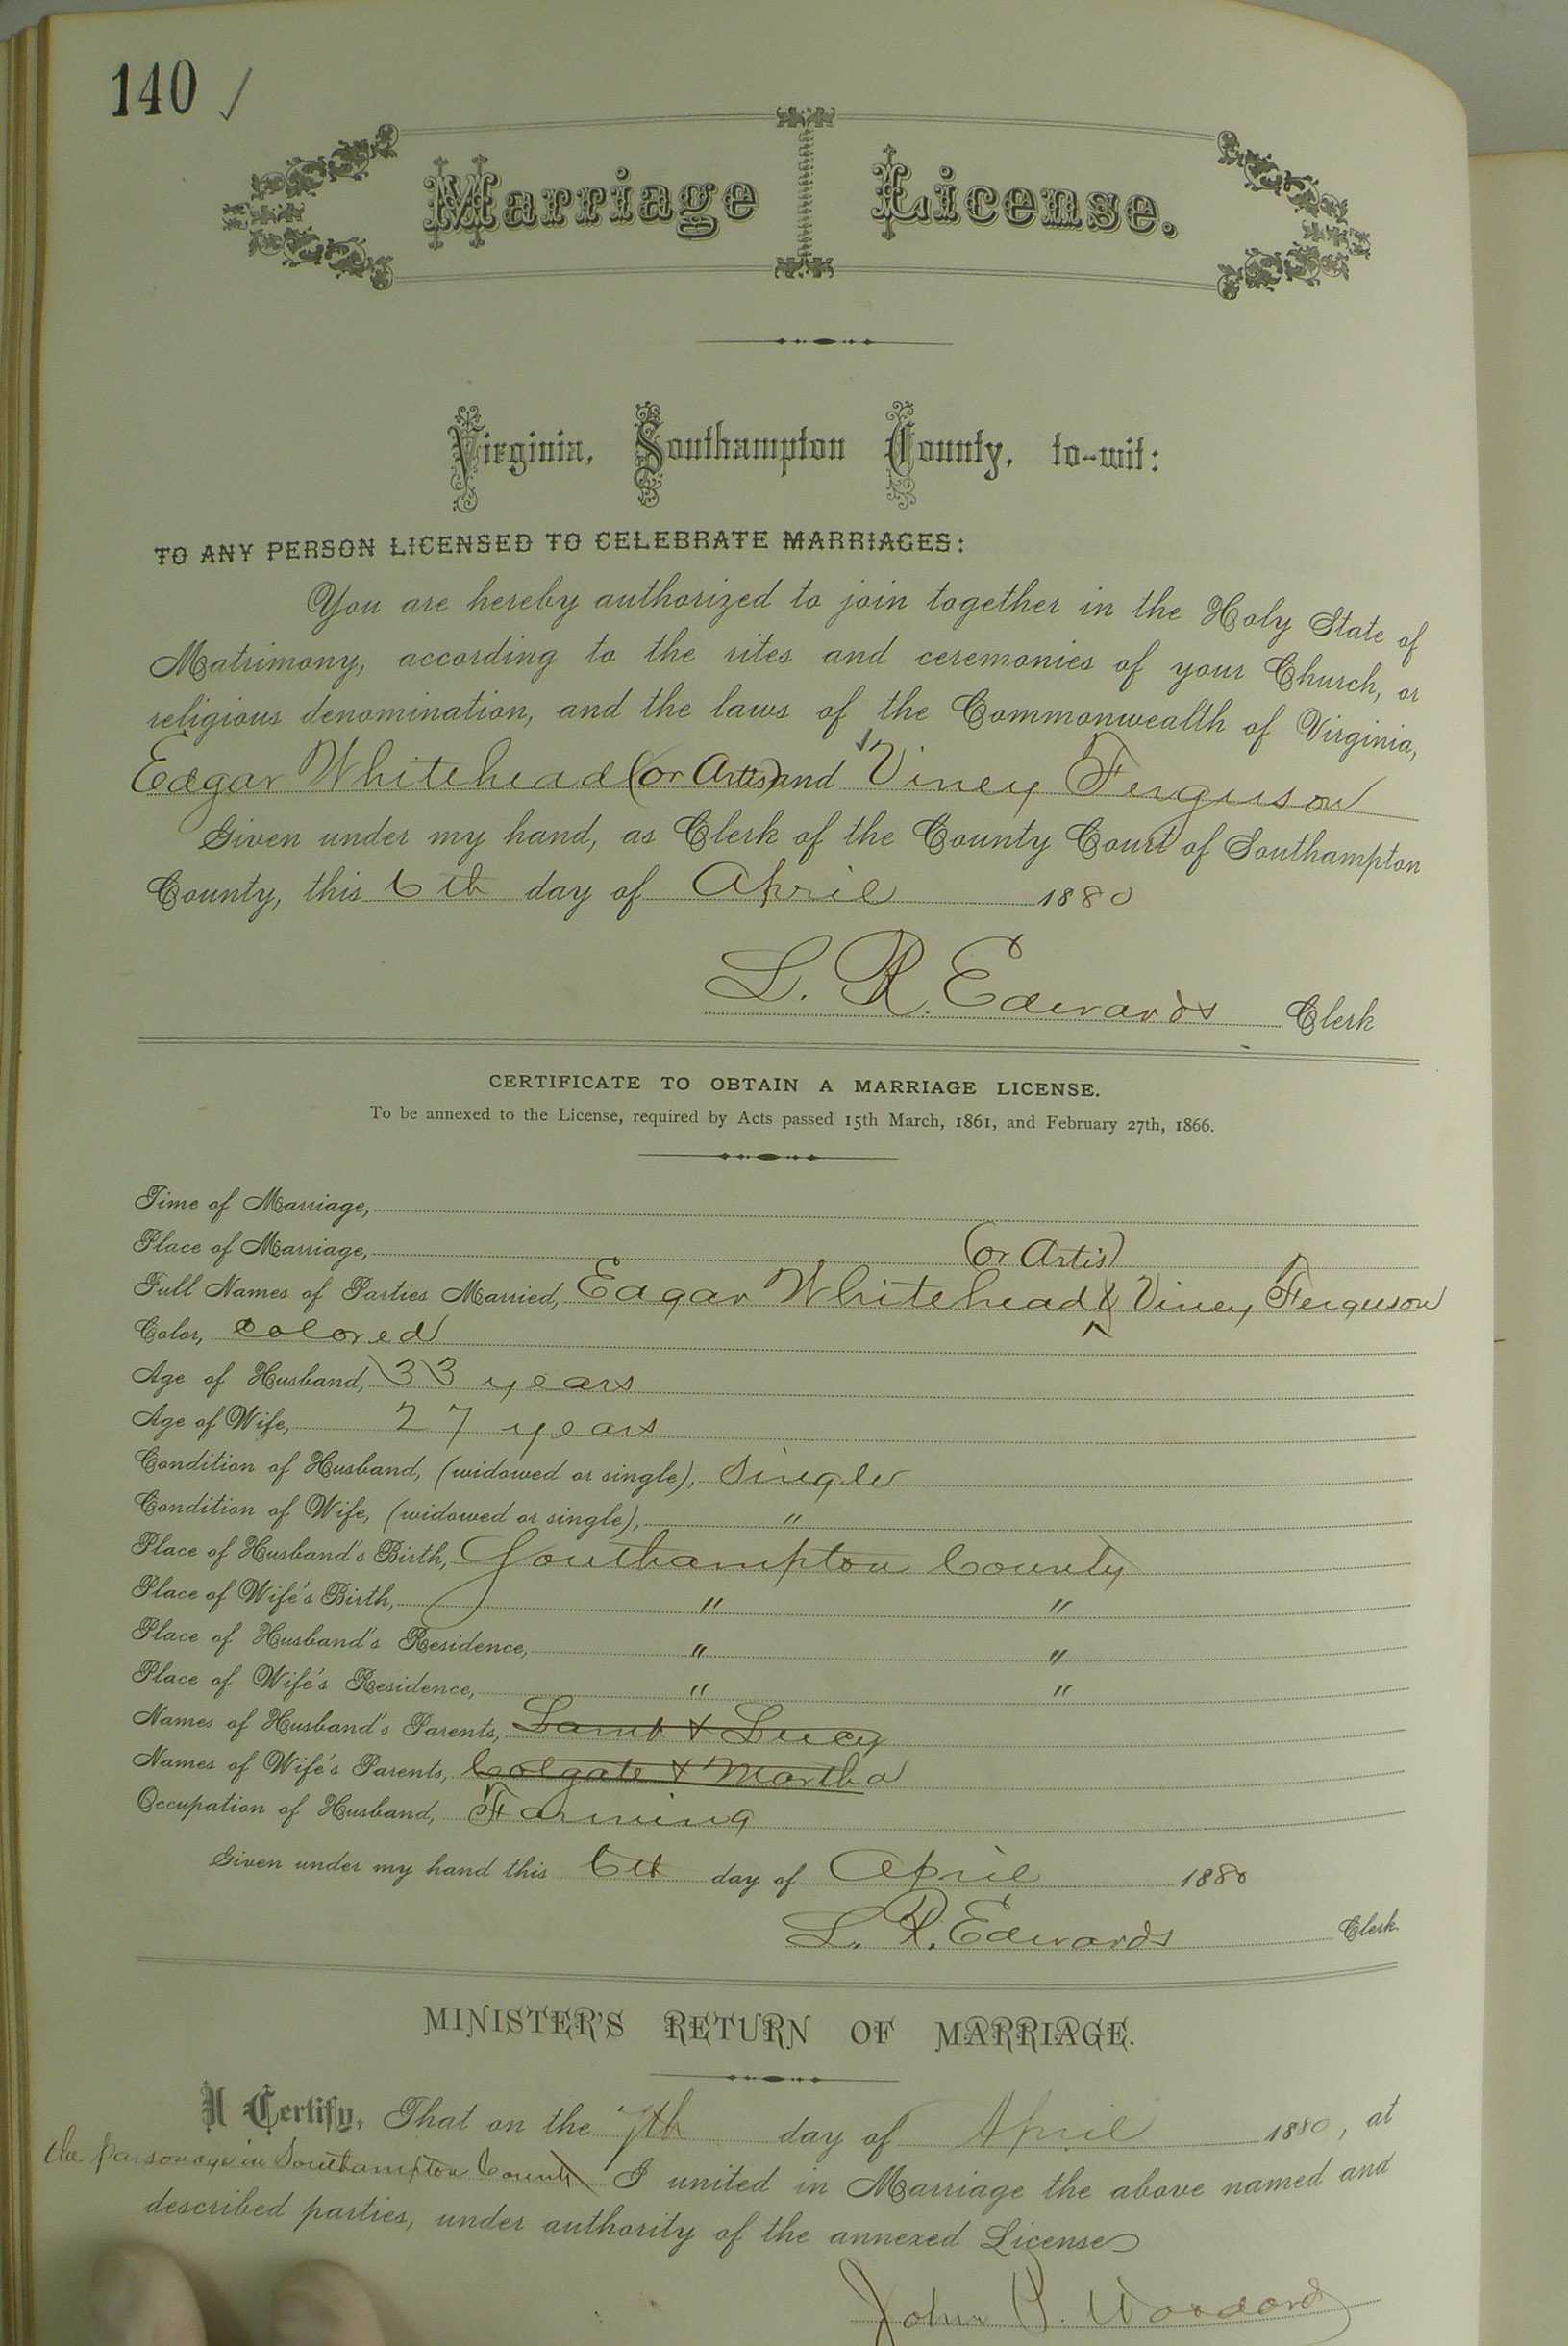 140 ✓
Marriage License.
Virginia, Southampton County, to-wit:
TO ANY PERSON LICENSED TO CELEBRATE MARRIAGES:
You are hereby authorized to join together in the Holy State of
Matrimony, according to the rites and ceremonies of your Church, or
religious denomination, and the laws of the Commonwealth of Virginia,
Edgar Whitehead (or Artis) and Viney Ferguson
Given under my hand, as Clerk of the County Court of Southampton
County, this 6th day of April 1880
L. R. Edwards Clerk
CERTIFICATE TO OBTAIN A MARRIAGE LICENSE.
To be annexed to the License, required by Acts passed 15th March, 1861, and February 27th, 1866.
Time of Marriage,
Place of Marriage,
(or Artis)
Full Names of Parties Married, Edgar Whitehead & Viney Ferguson
Color, colored
Age of Husband, 33 years
Age of Wife, 27 years
Condition of Husband, (widowed or single), Single
Condition of Wife, (widowed or single), "
Place of Husband's Birth, Southampton County
Place of Wife's Birth, " "
Place of Husband's Residence, " "
Place of Wife's Residence, " "
Names of Husband's Parents, & Lucy
Names of Wife's Parents, Colgate & Martha
Occupation of Husband, Farming
Given under my hand this 6th day of April 1880
L. R. Edwards Clerk.
MINISTER'S RETURN OF MARRIAGE.
I Certify, That on the 7th day of April 1880, at
the parsonage in Southampton County I united in Marriage the above named and
described parties, under authority of the annexed License
John Woodard